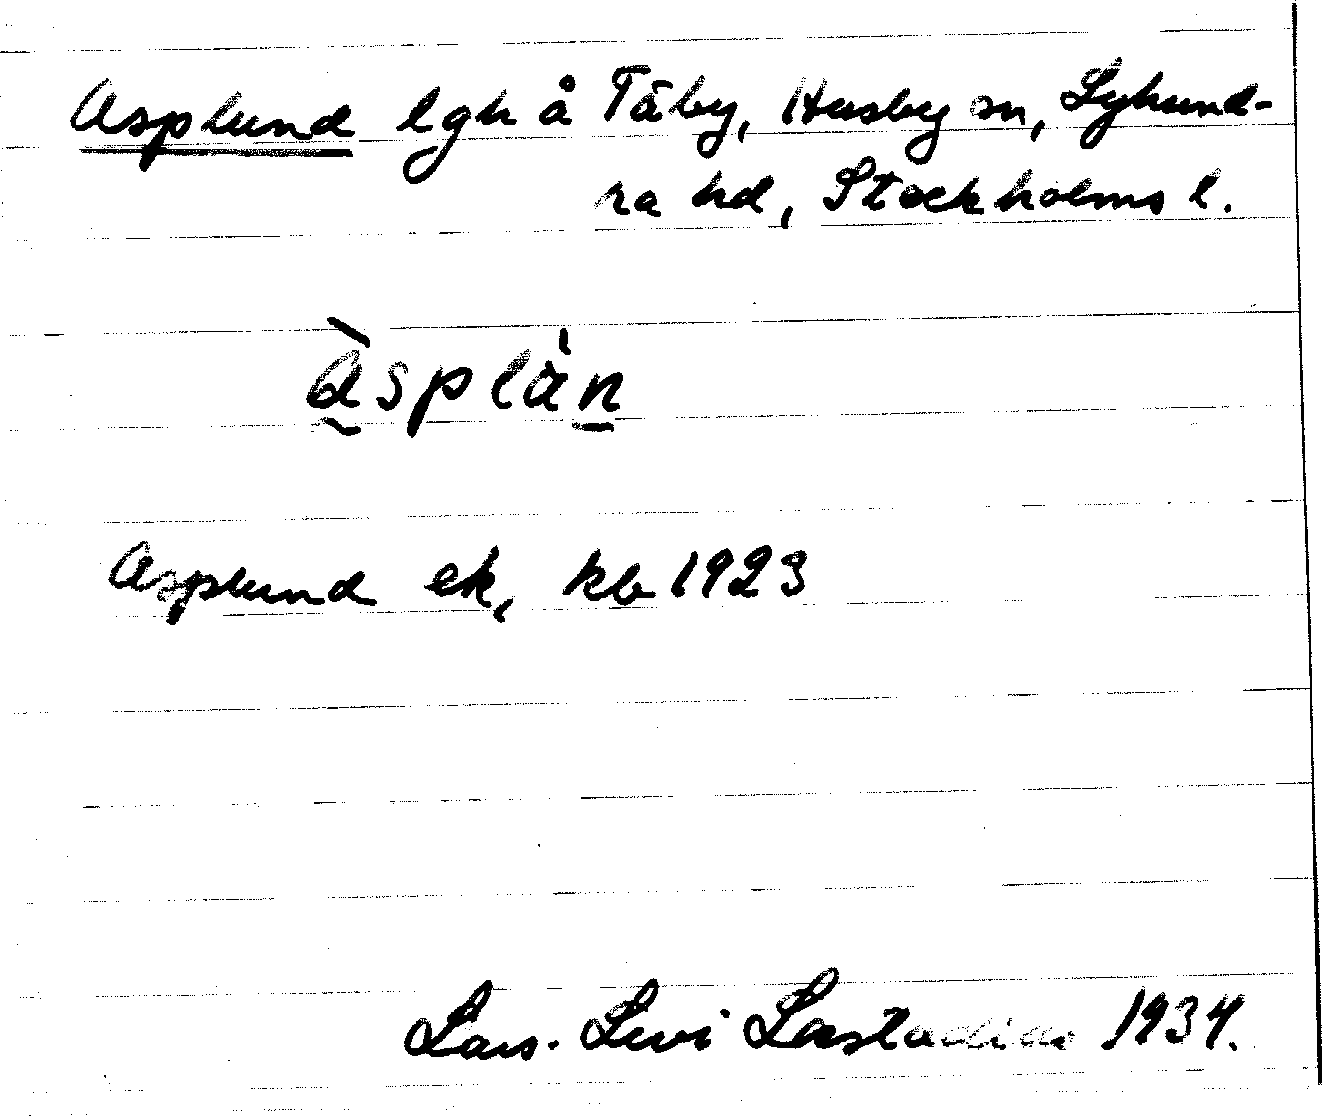 Asplund lgh å Täby, Husby sn, Lyhund-
ra hd, Stockholms l.
àsplàn
Asplund ek, kb 1923
Lars-Levi Læstadius 1934.